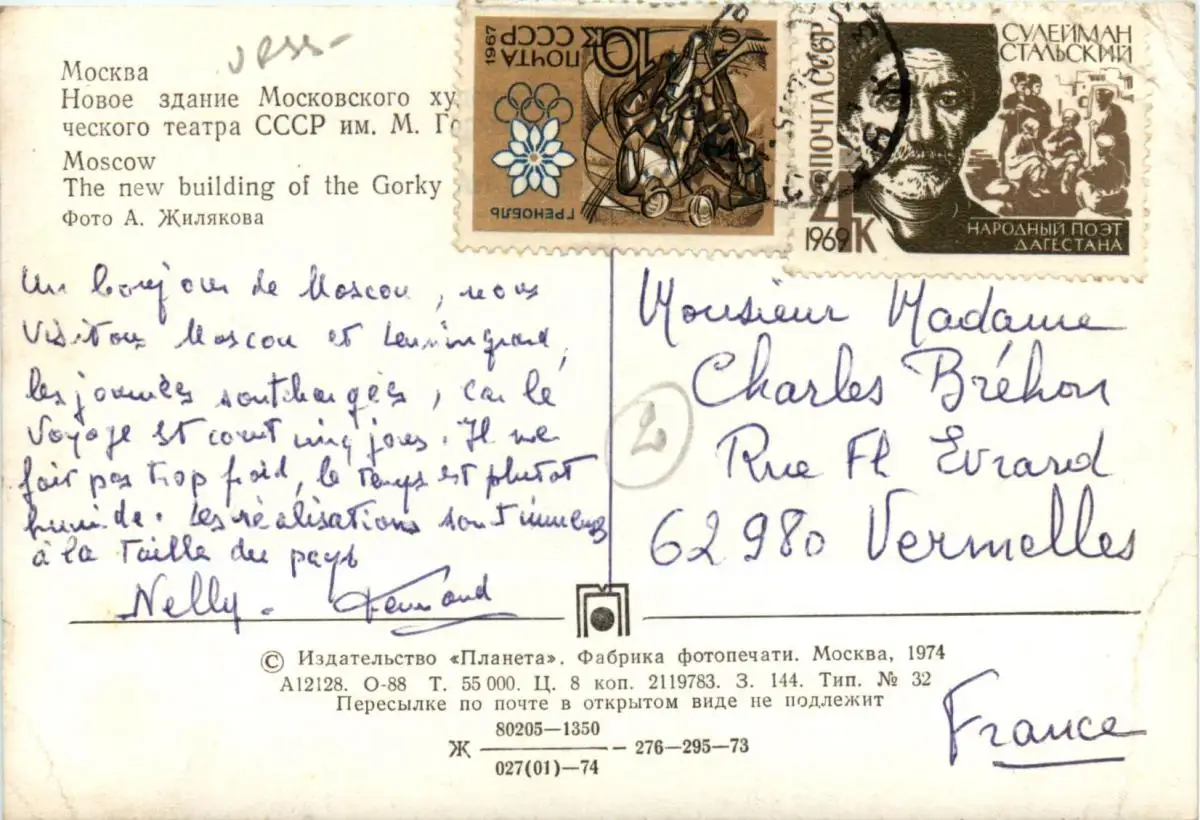 Москва
Новое здание Московского ху
ческого театра СССР им. М. Го
Moscow
The new building of the Gorky
Фото А. Жилякова
1967
ПОЧТА
СССР
10к
ГРЕНОБЛЬ
СУЛЕЙМАН
СТАЛЬСКИЙ
ПОЧТА СССР
4к
1969
НАРОДНЫЙ ПОЭТ
ДАГЕСТАНА
Un bonjour de Moscou, nous
visitons Moscou et Leningrad,
les journées sont chargées, car le
voyage est court cinq jours. Il ne
fait pas trop froid, le temps est plutôt
humide. Les réalisations sont immenses
à la taille du pays
Nelly. Fernand
Monsieur Madame
Charles Bréhon
Rue Fl Evrard
62980 Vermelles
France
2
© Издательство «Планета». Фабрика фотопечати. Москва, 1974
А12128. О-88 Т. 55 000. Ц. 8 коп. 2119783. З. 144. Тип. № 32
Пересылке по почте в открытом виде не подлежит
80205—1350
Ж ——— – 276—295—73
027(01)—74